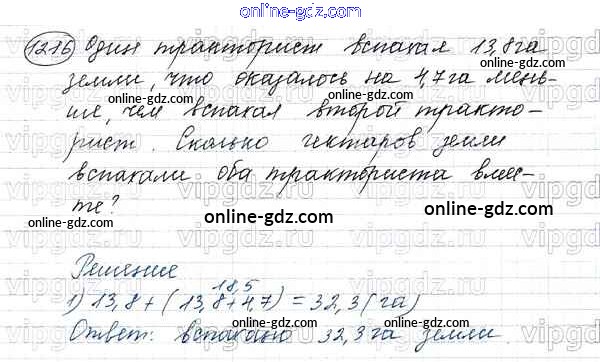 online-gdz.com
1216 Один тракторист вспахал 13,8 га
земли, что оказалось на 4,7 га мень-
online-gdz.com online-gdz.com
ше, чем вспахал второй тракто-
рист. Сколько гектаров земли
online-gdz.com
вспахали оба тракториста вмес-
те?
online-gdz.com online-gdz.com online-gdz.com
Решение
18,5
1) 13,8 + (13,8+4,7) = 32,3 (га)
online-gdz.com
Ответ: вспахано 32,3 га земли.
online-gdz.com online-gdz.com